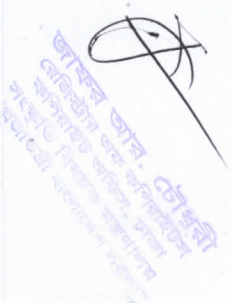 জাফর আর. চৌধুরী
রেজিস্ট্রার অফ কপিরাইটস
কপিরাইট অফিস, ঢাকা
সংস্কৃতি বিষয়ক মন্ত্রণালয়